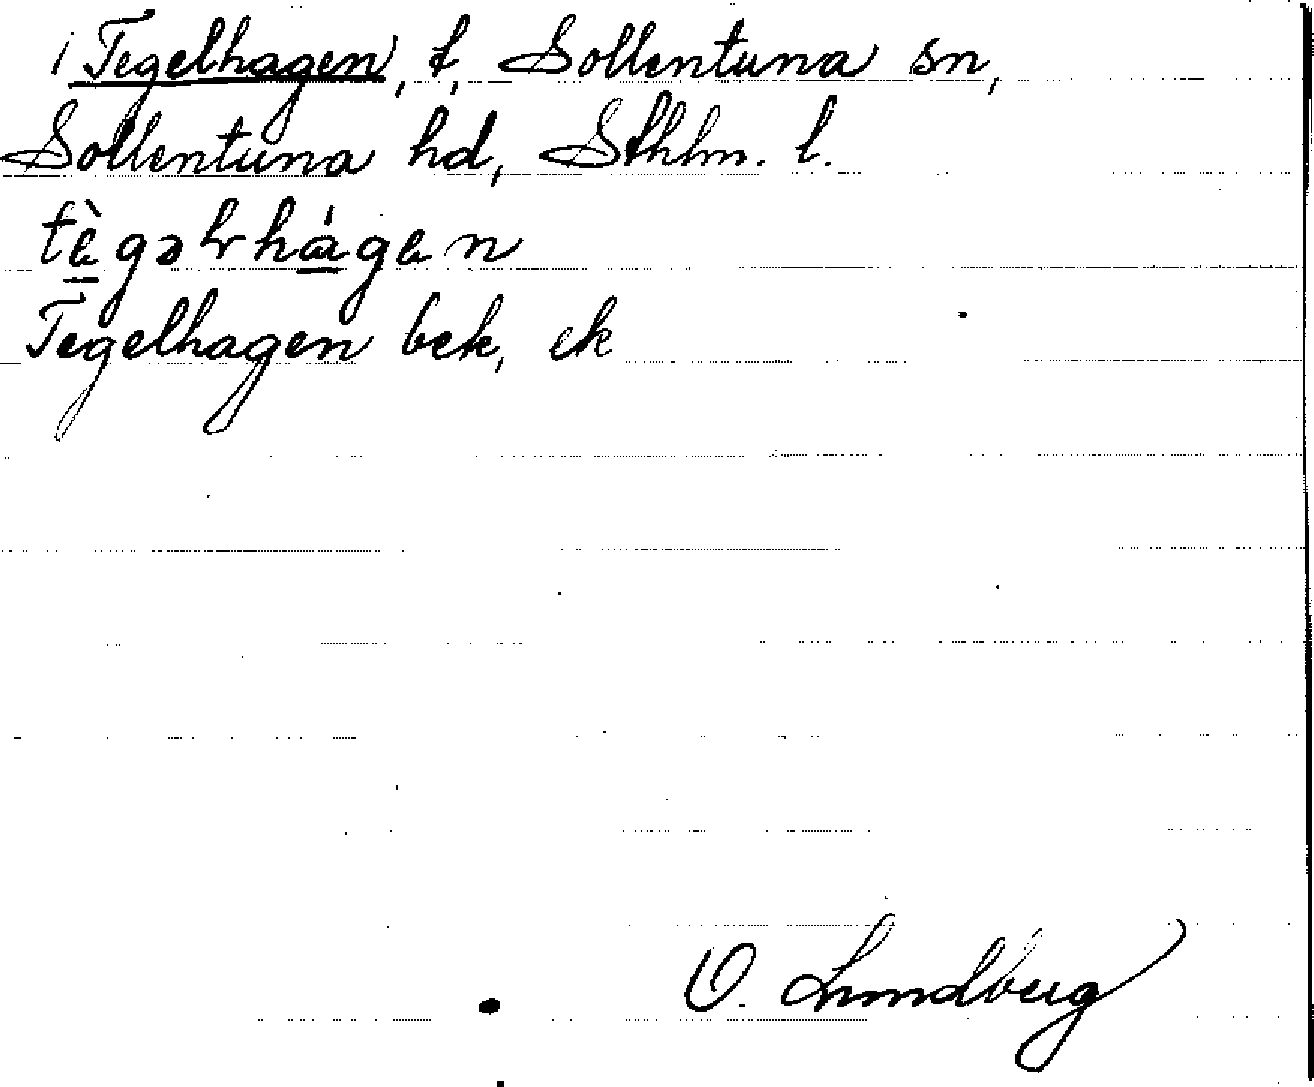 i Tegelhagen, t, Sollentuna sn,
Sollentuna hd, Sthlm. l.
tègəlhágen
Tegelhagen bek, ek
O. Lundberg